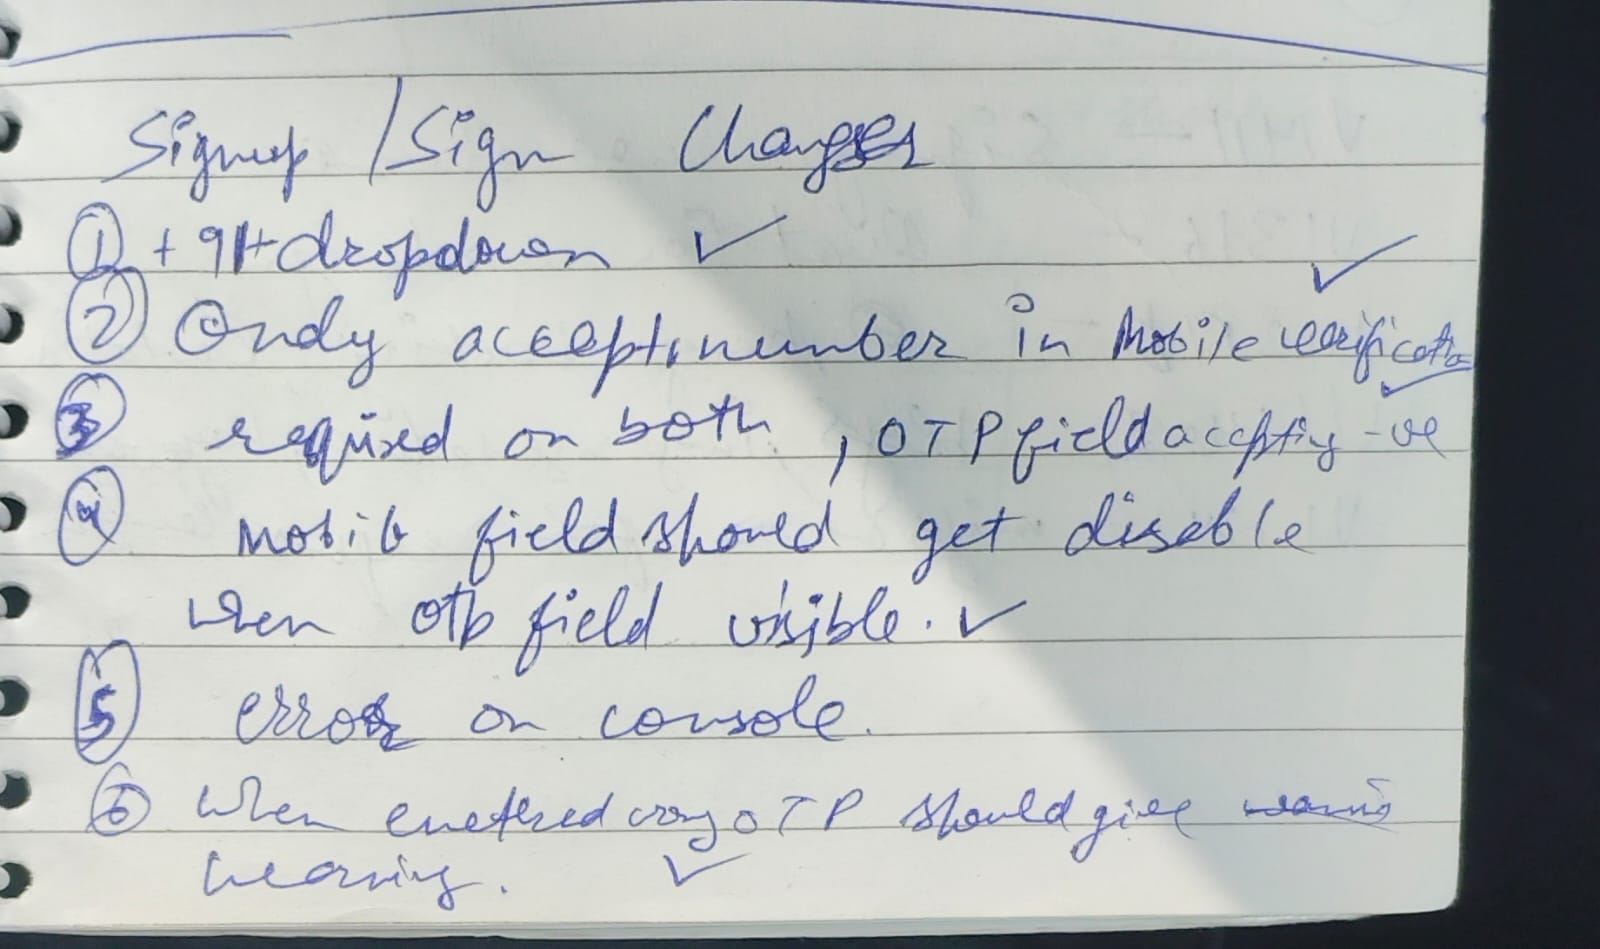 Signup / Sign Changes
① +91+dropdown ✓
② Only accepts number in Mobile verification ✓
③ required on both, OTP field accepting -ve ✓
④ mobile field should get diseble
when otp field visible. ✓
⑤ error on console.
⑥ when enetered wrong OTP should give
wearning. ✓